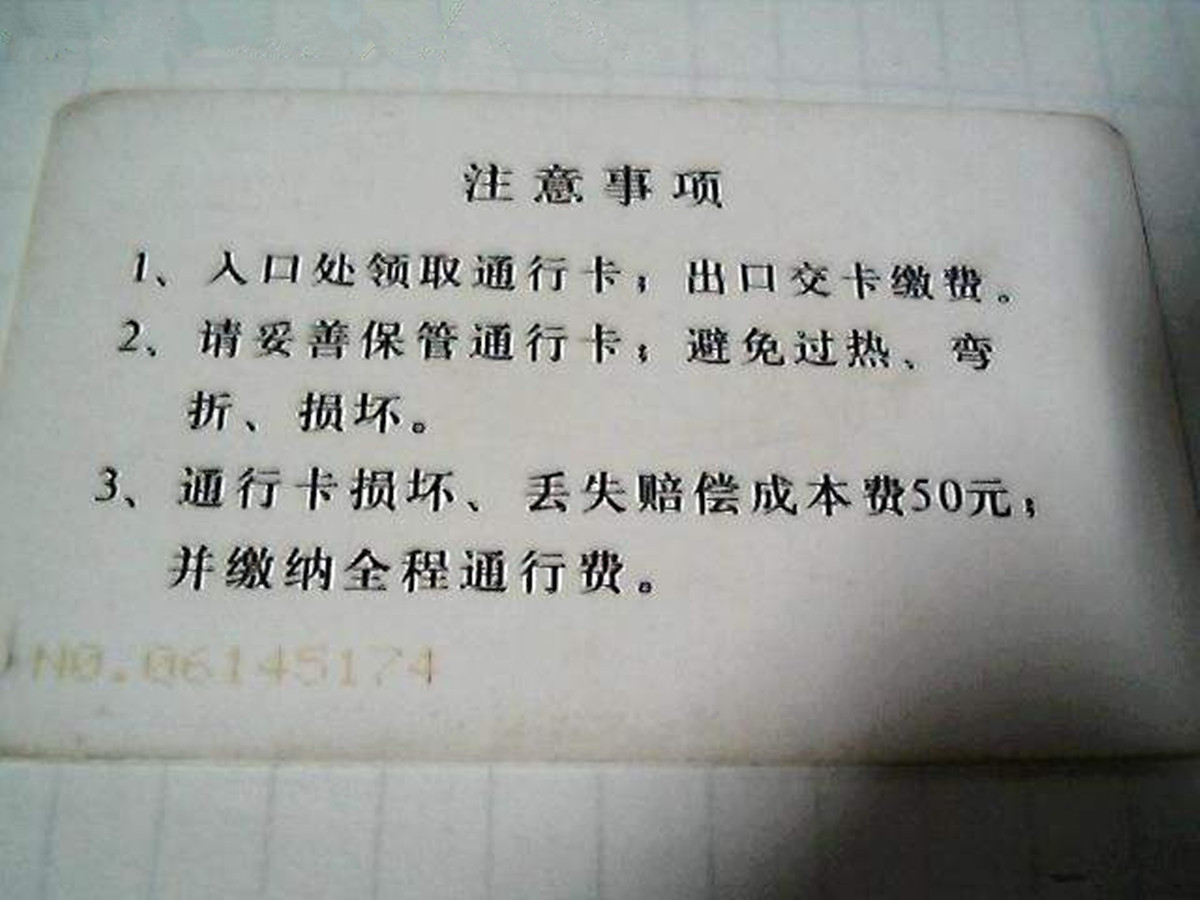 注意事项
1、入口处领取通行卡；出口交卡缴费。
2、请妥善保管通行卡；避免过热、弯
折、损坏。
3、通行卡损坏、丢失赔偿成本费50元；
并缴纳全程通行费。
NO.06145174